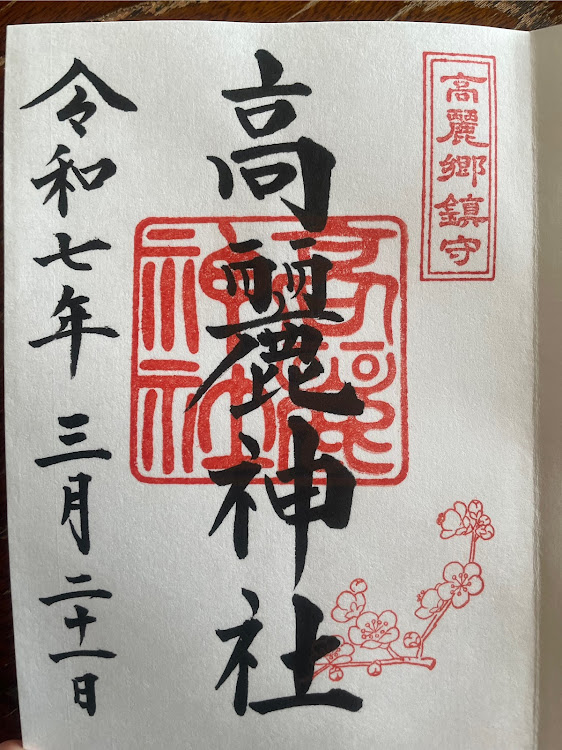 高麗郷鎮守
高麗神社
高麗神社
令和七年三月二十一日